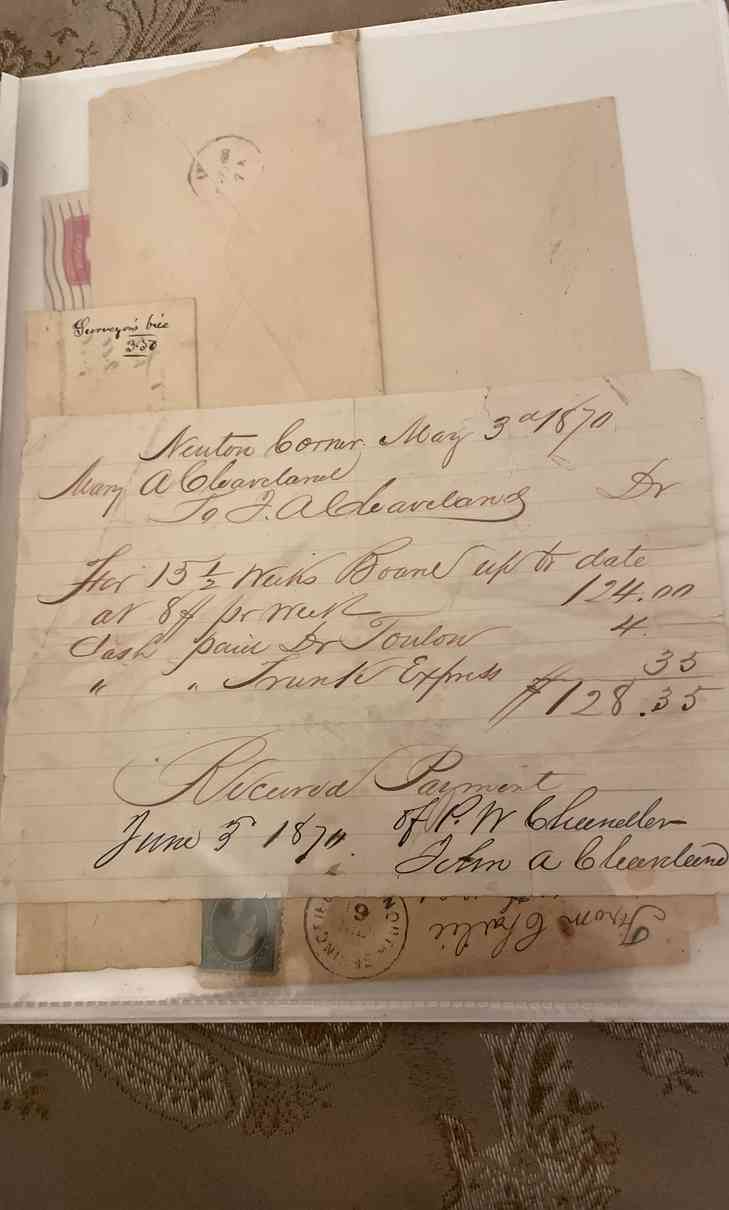 Surveyor's bill
3.50
Newton Corner May 3d 1870
Mary A Cleaveland
To J. A Cleaveland Dr
For 15 1/2 Weeks Board up to date
at 8$ pr week 124.00
Cash paid Dr Toulon 4.
" " Trunk Express 35
$128.35
Received Payment
June 3 1870. of P. W Chandler
John A Cleaveland
From Charlie